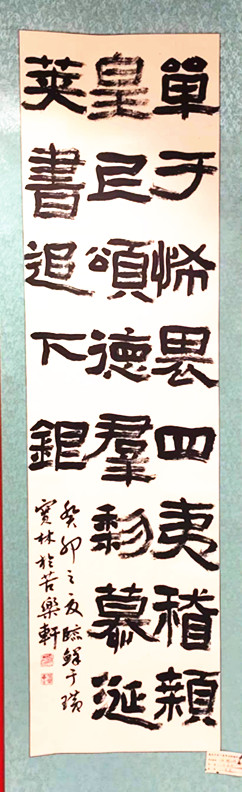 單于怖畏四夷稽顙
皇已頌德羣黎慕涎
莢書追下銀
癸卯之夏臨鮮于璜
寶林於苦樂軒